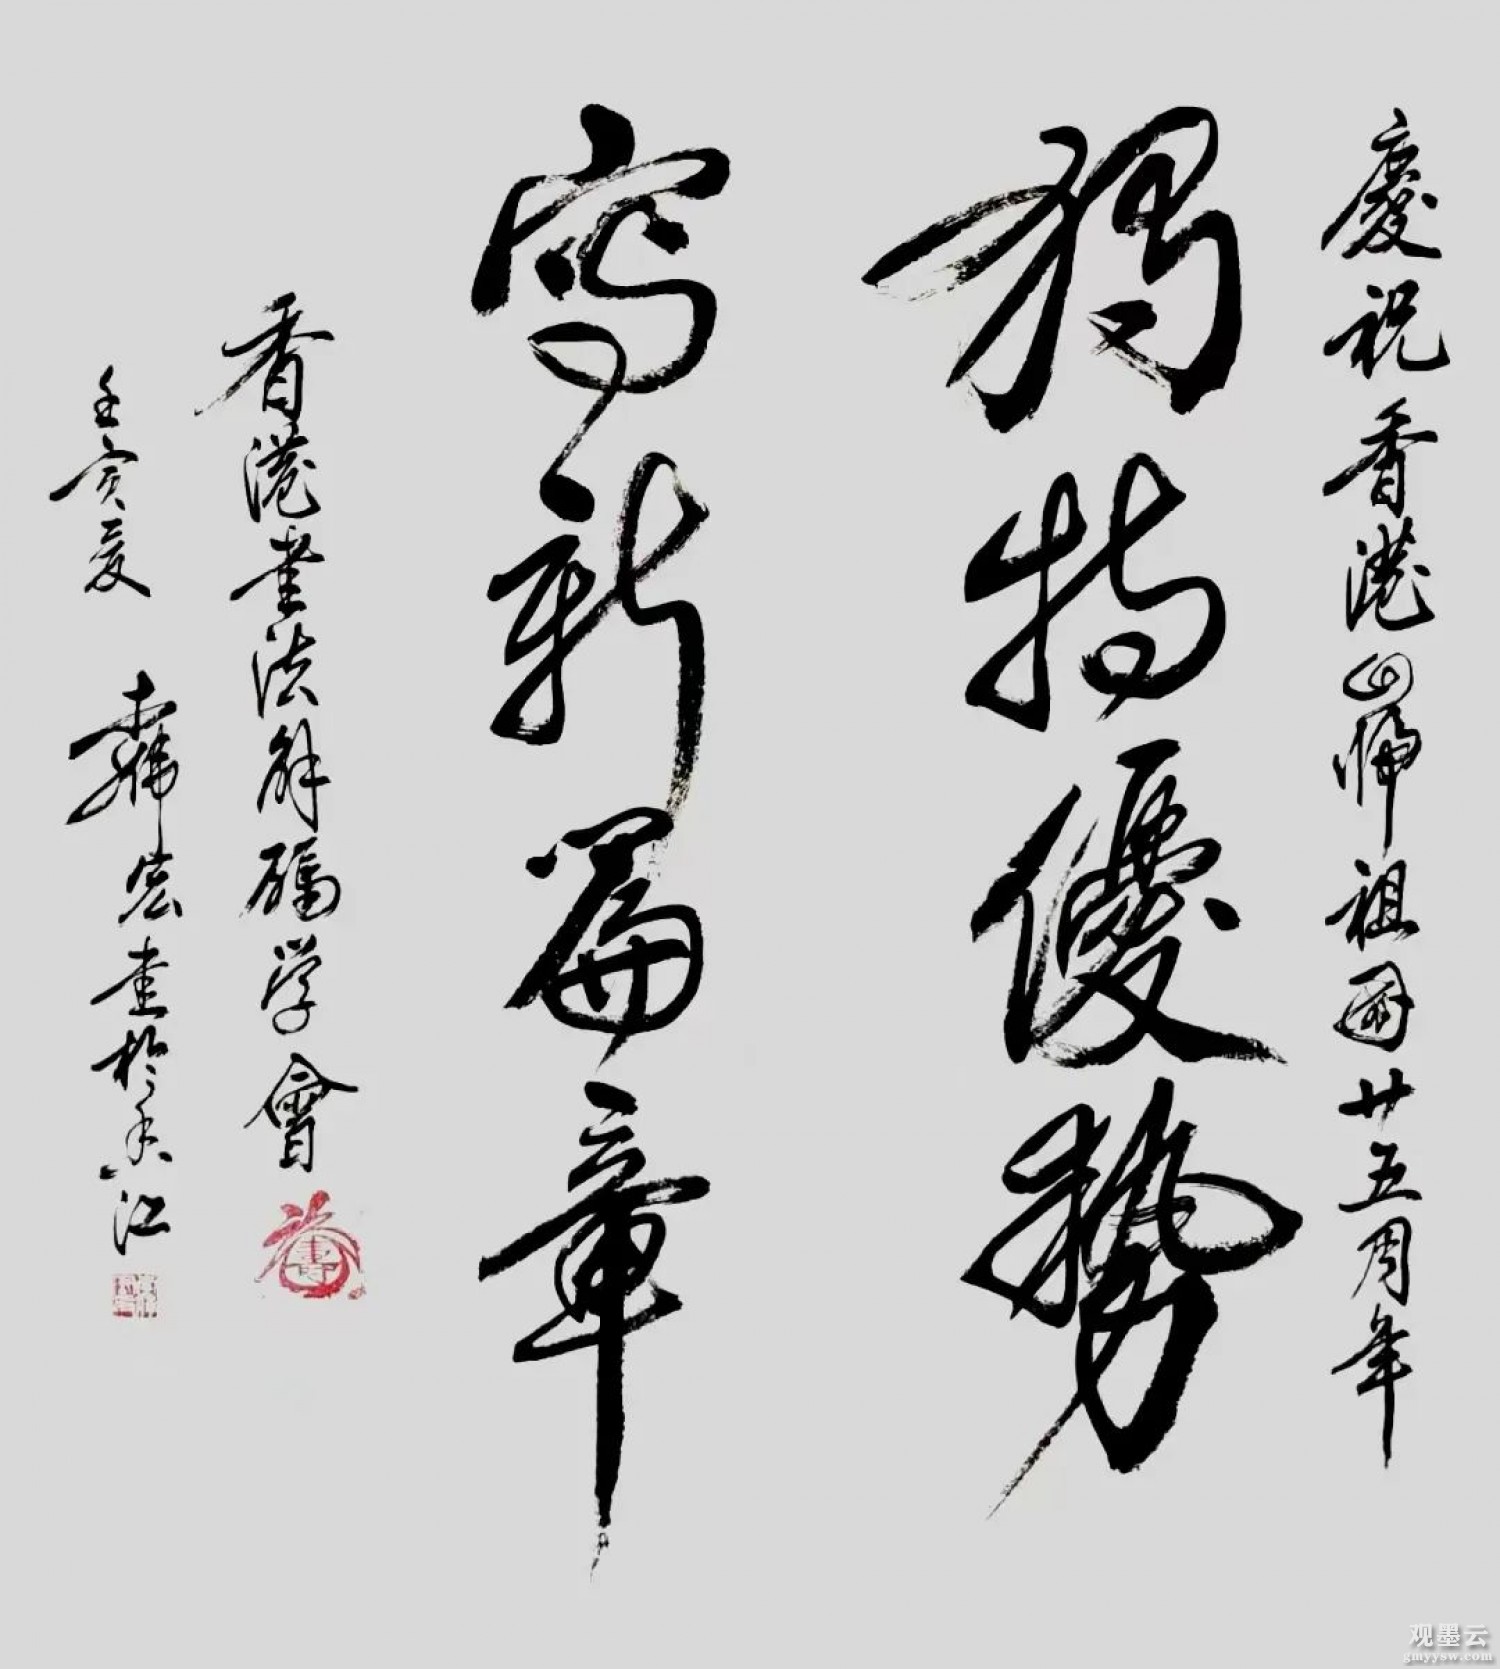 慶祝香港回歸祖國廿五周年
獨特優勢
寫新篇章
香港書法解碼学會
壬寅夏 韓宏書於香江
观墨云
gmyysw.com